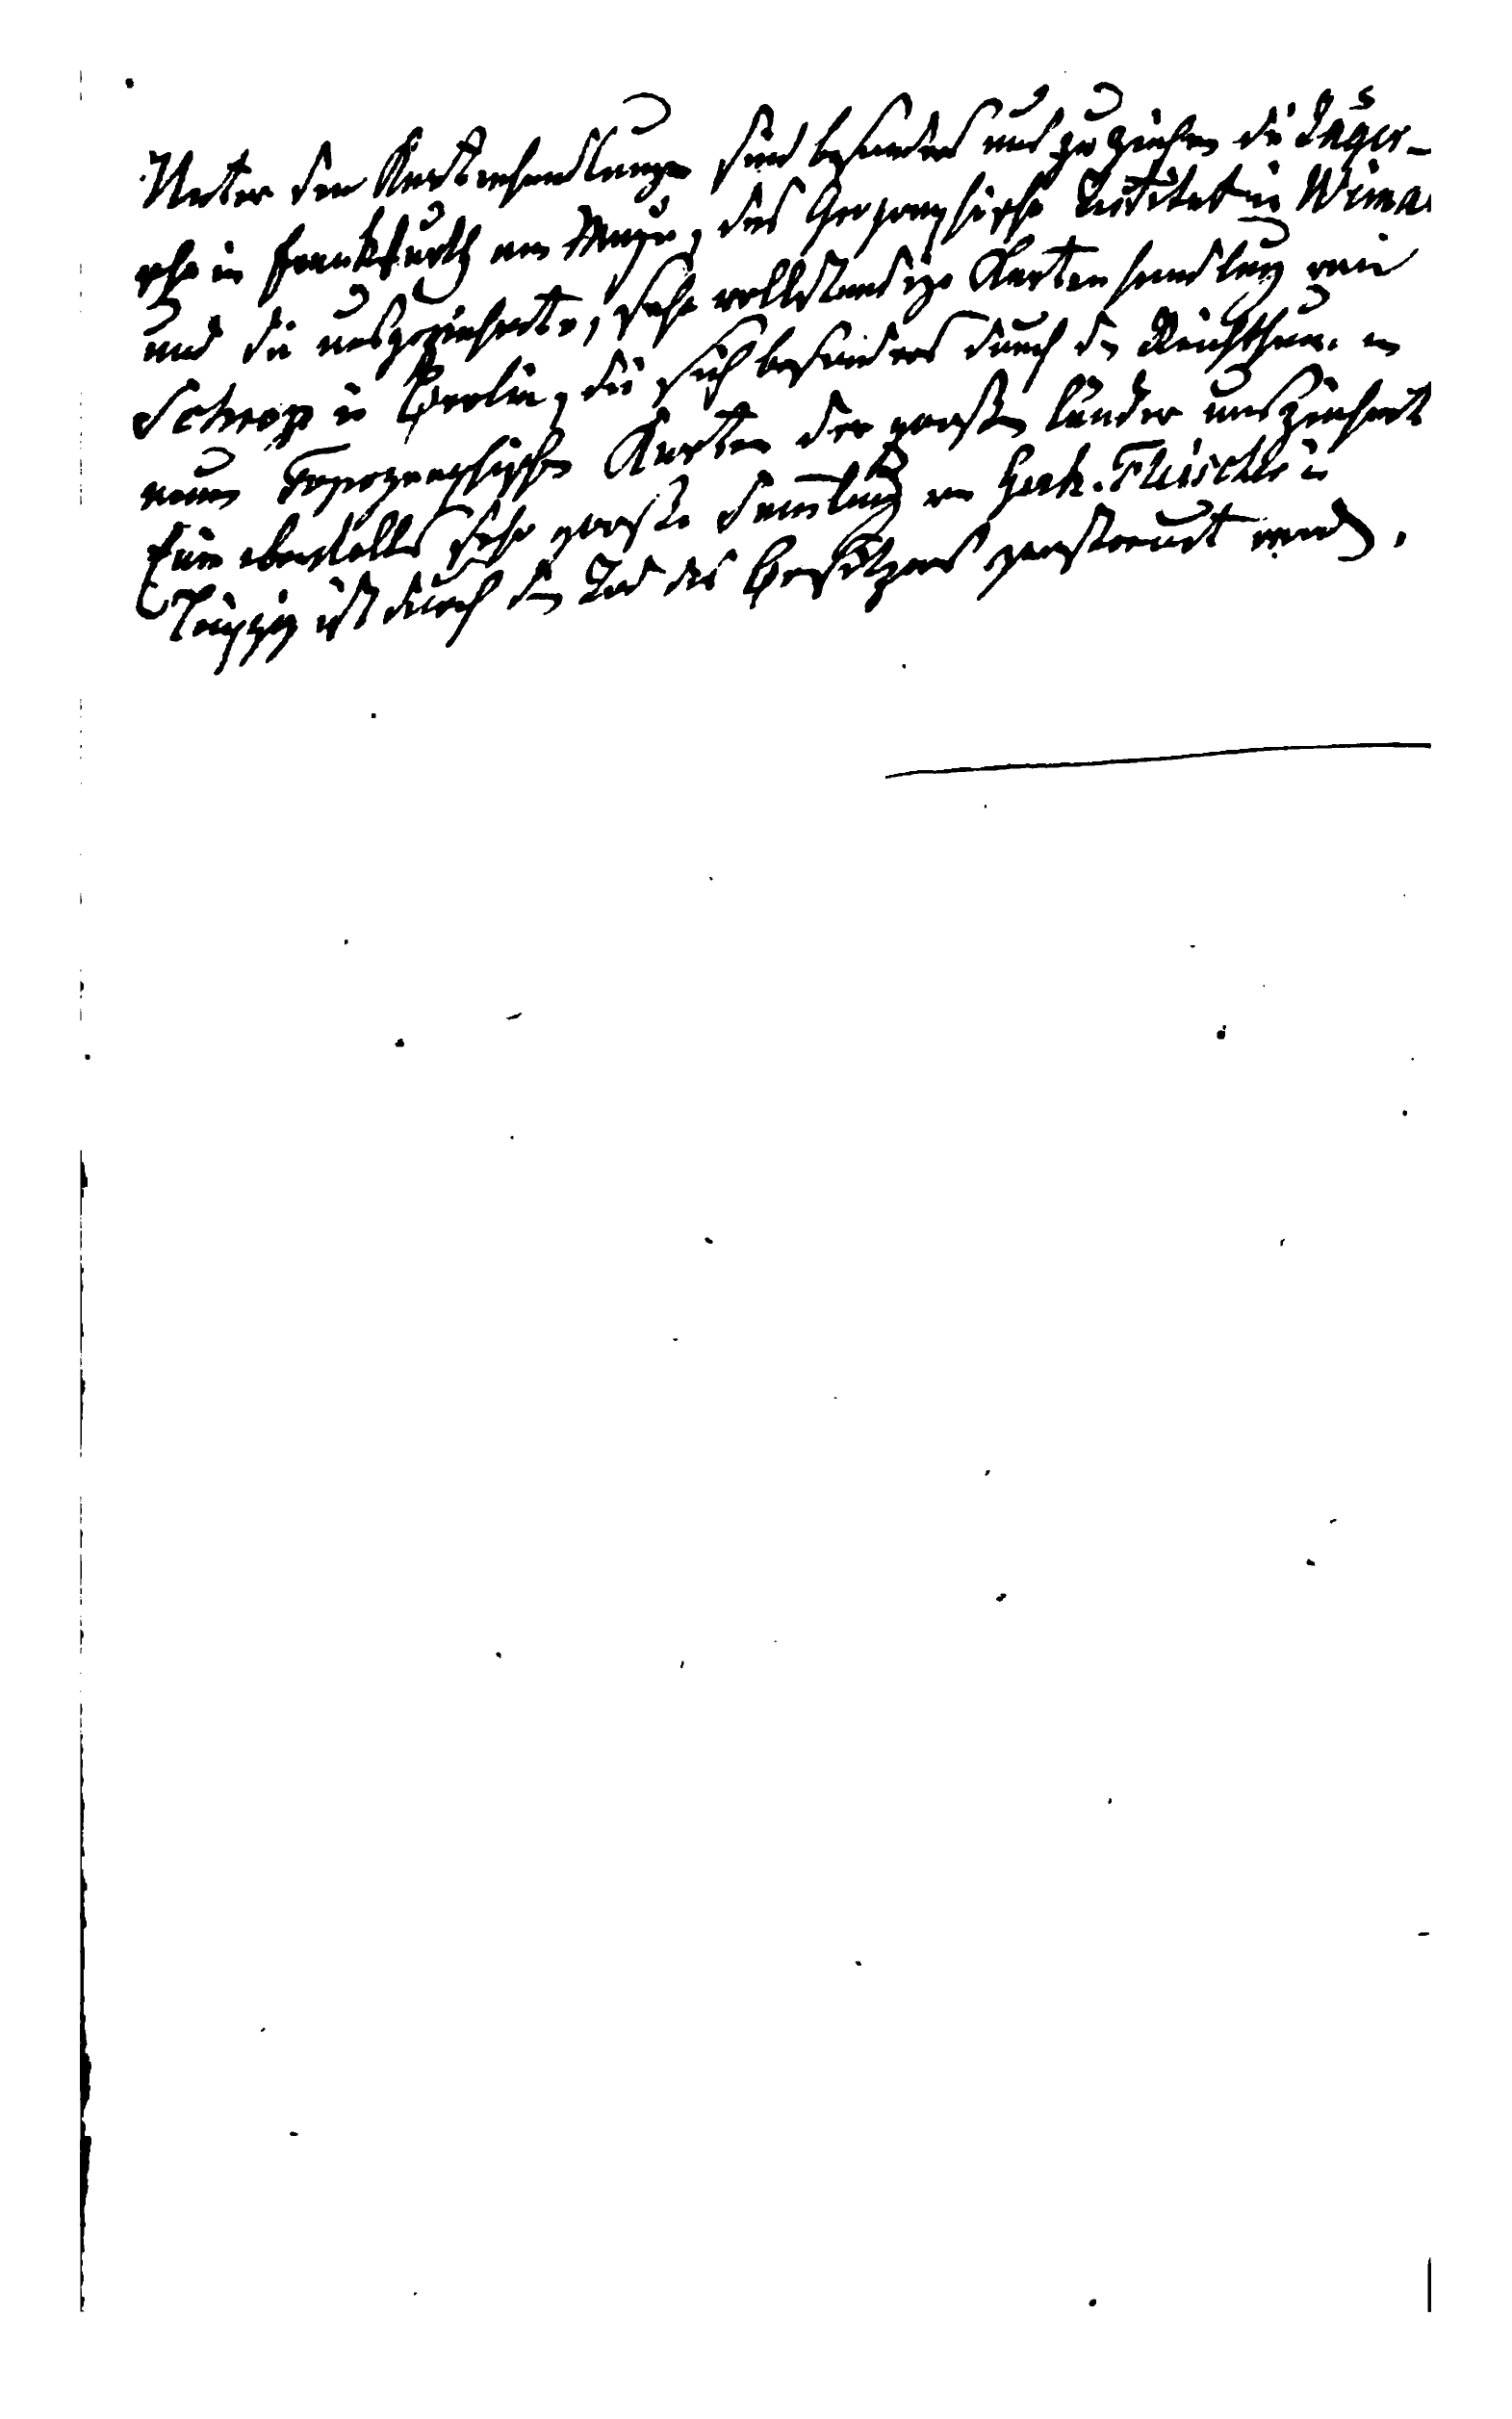 Unter den Kartenhandlungen sind besonders aus zu zeichen die Jäger-
sche in Frankfurth am Mayn, das Geographische Institut in Weimar
und die ausgezeichnete, sehr vollständige Kartenhandlung von
Schropp in Berlin, die sich besonders durch den Reichthum an
neuen topographischen Karten der großen Länder auszeichnet
Eine ebenfalls sehr große Samlung von Gerh. Fleischer in
Leipzig ist durch den Tod des Besitzers zerstreut word.